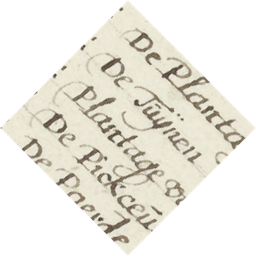 De Planta
De Tuÿnen
Plantage
De Pickceu
De Paerde